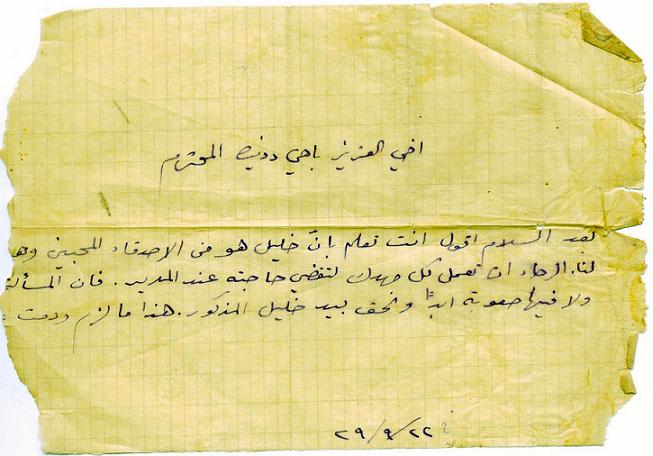 اخي العزيز باجي المحترم
بعد السلام اقول انت تعلم بانّ خليل هو من الاصدقاء المحبين وها
لنا. الرجاء ان تعمل كل جهدك لتقضي حاجته عند المدير. فان المسألة
ولا فيها صعوبة ابدًا والحق بيد خليل المذكور. هذا ما لزم ودمت
٢٩/٩/٢٢